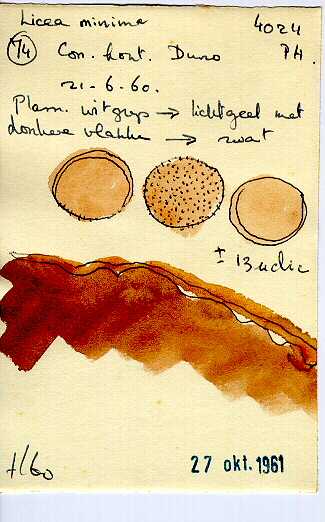 Licea minima 4024
74 Con. hout. Duno PH.
21-6-60.
Plasm. witgrijs → lichtgeel met
donkere vlekken → zwart
± 13 
1/60
27 okt. 1961